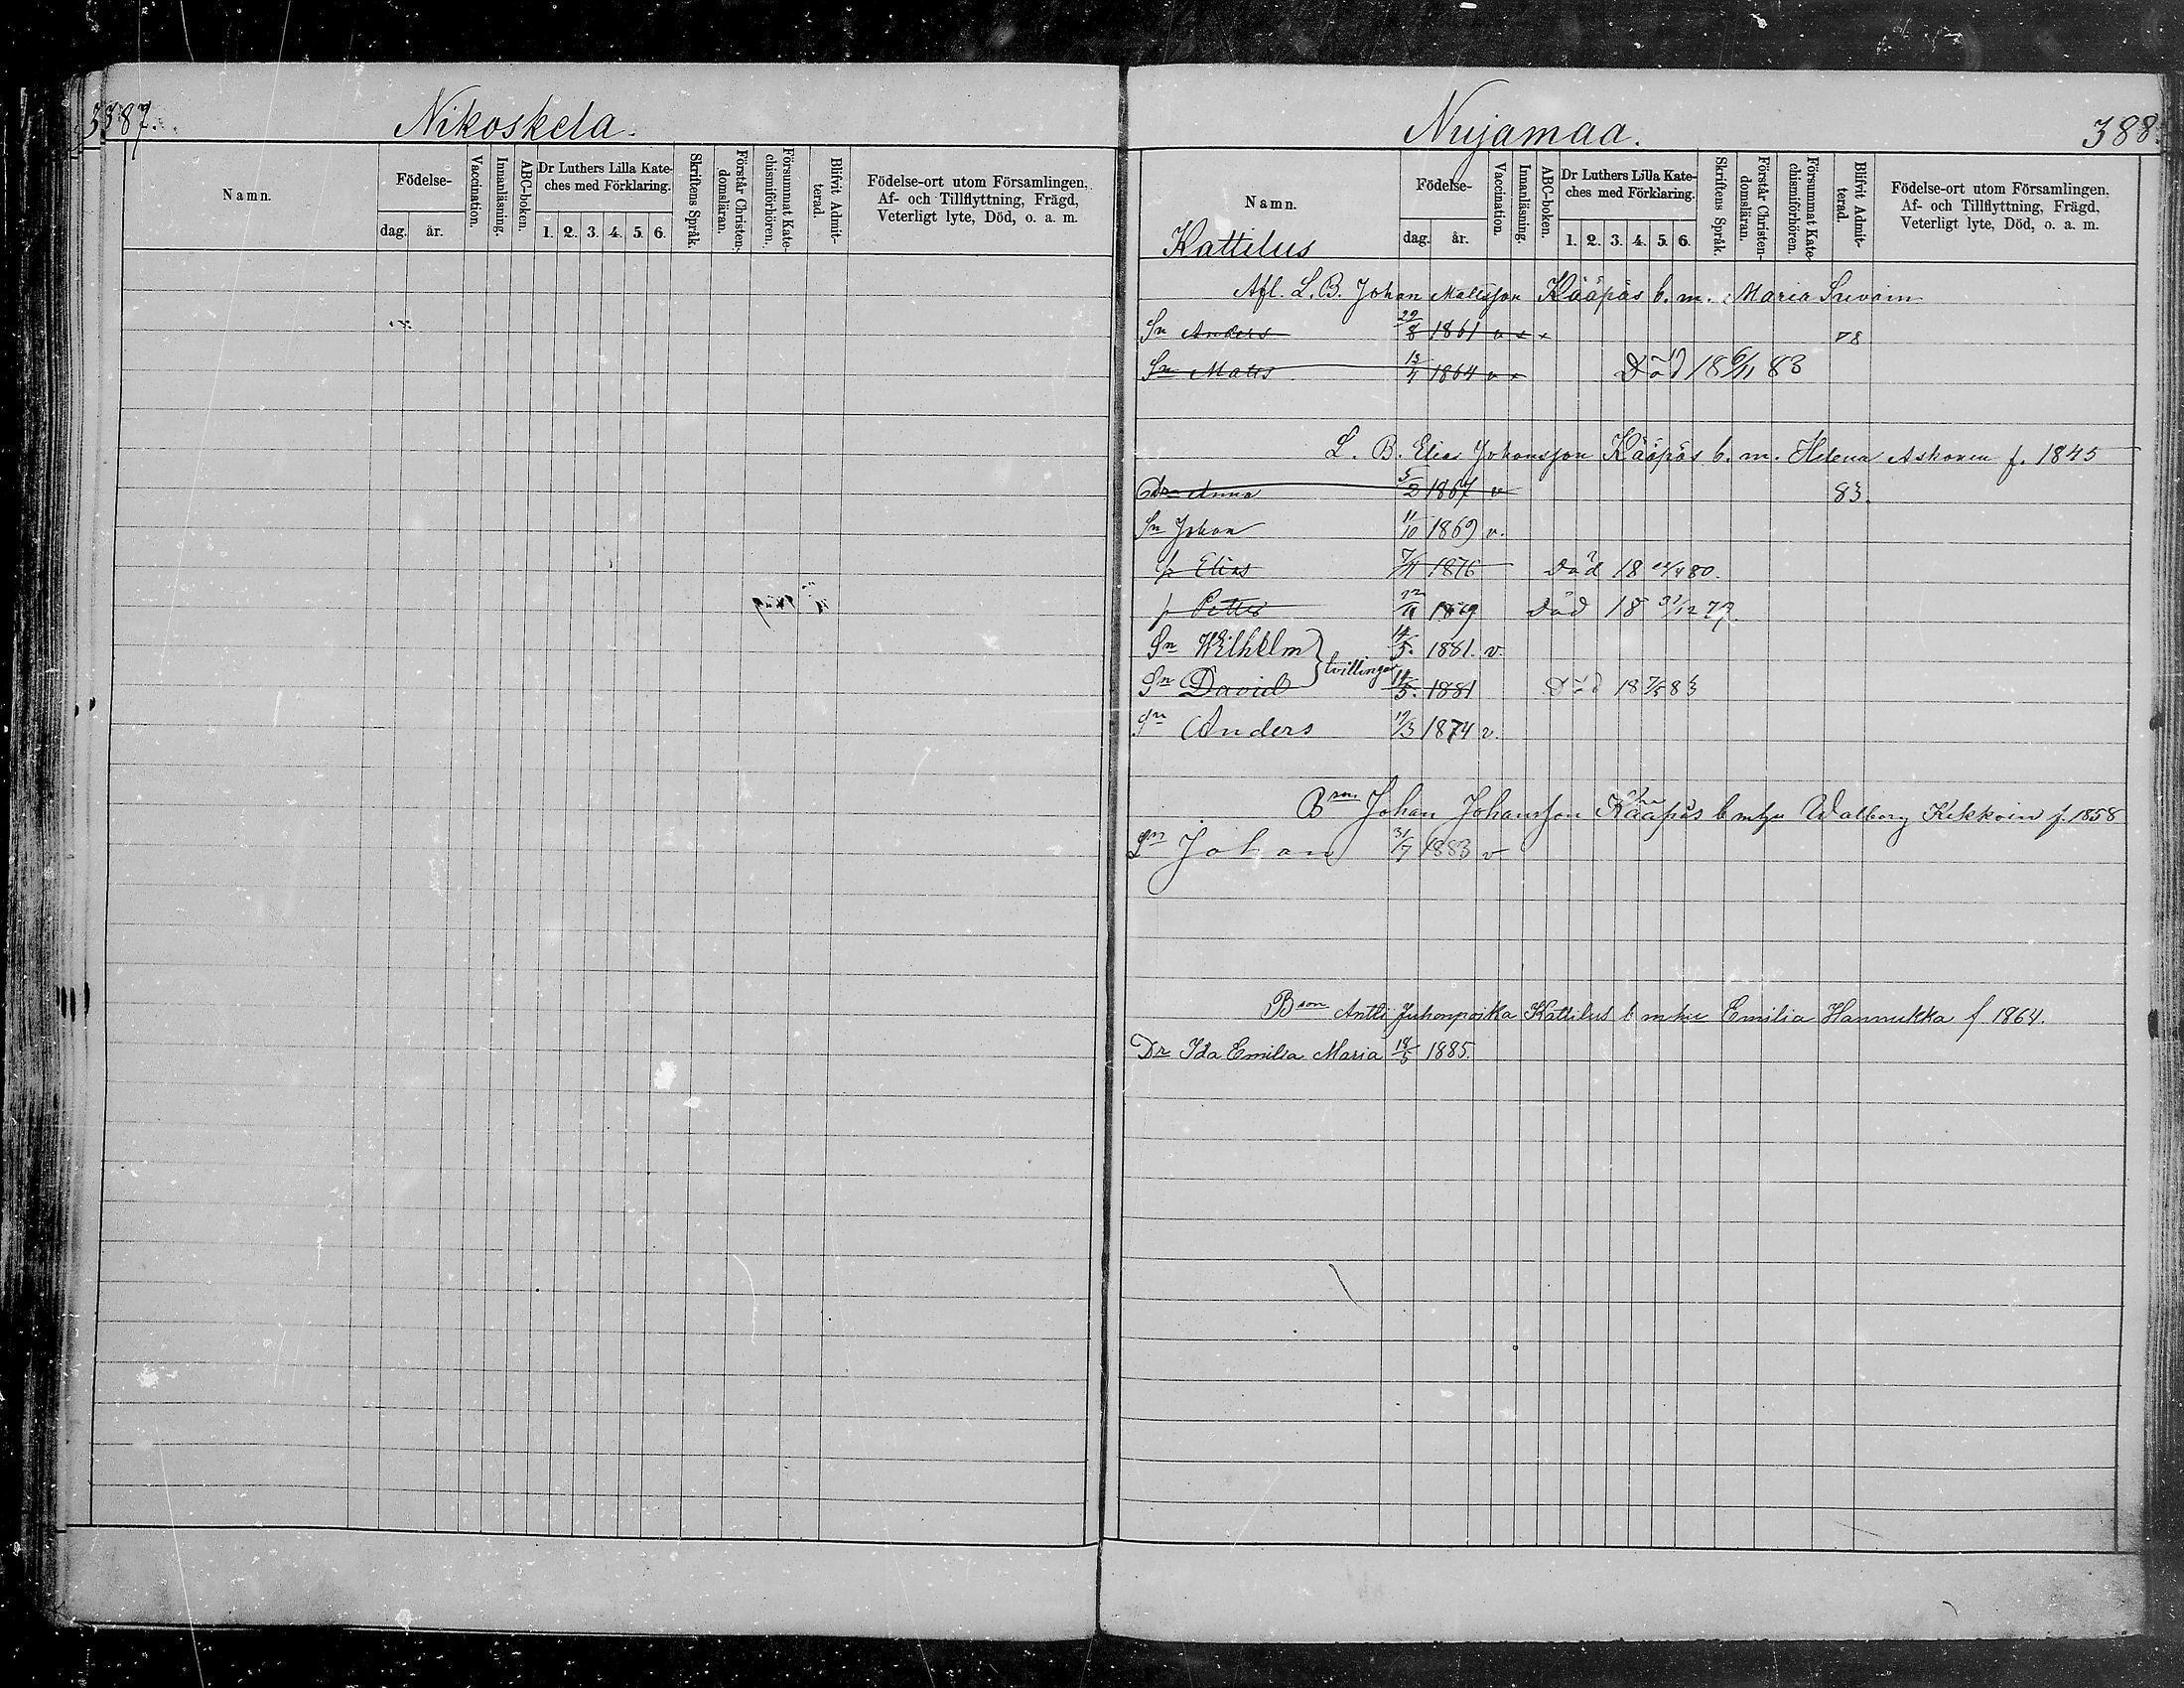 387.
Nikoskela.
Namn.
Födelse-
dag.
år.
Vaccination.
Innanläsning.
ABC-boken.
Dr Luthers Lilla Kate-
ches med Förklaring.
1. 2. 3. 4. 5. 6.
Skriftens Språk.
Förstår Christen-
domsläran.
Försummat Kate-
chismiförhören.
Blifvit Admit-
terad.
Födelse-ort utom Församlingen,
Af- och Tillflyttning, Frägd,
Veterligt lyte, Död, o. a. m.
Nuijamaa.
388.
Namn.
Födelse-
dag.
år.
Vaccination.
Innanläsning.
ABC-boken.
Dr Luthers Lilla Kate-
ches med Förklaring.
1. 2. 3. 4. 5. 6.
Skriftens Språk.
Förstår Christen-
domsläran.
Försummat Kate-
chismiförhören.
Blifvit Admit-
terad.
Födelse-ort utom Församlingen,
Af- och Tillflyttning, Frägd,
Veterligt lyte, Död, o. a. m.
Kattilus
Afl. L. B. Johan Mattsson Kääpäs b. m. Maria
Sn Anders 29/8 1861 v x x 78
Sn Matts 1864 v x Död 18 6/11 83
L. B. Elias Johansson Kääpäs b. m. Helena Askonen f. 1845
Dr Anna 5/2 1867 v 83.
Sn Johan 11/10 1869 v.
Elias 1876 Död 18 80.
Petter 22/11 1879 Död 18 31/12 79.
Sn Wilhelm } tvillingar 14/5. 1881. v.
Sn David 14/5. 1881 Död 18 7/5 83
Sn Anders 1874 v.
Bson Johan Johansson Kääpäs b mhu Walborg Kekkoin f. 1858
Sn Johan 31/7 1883 v
Bson Antti Juhonpoika Kattilus b mhu Emilia Hannukka f 1864.
Dr Ida Emilia Maria 18/5 1885.